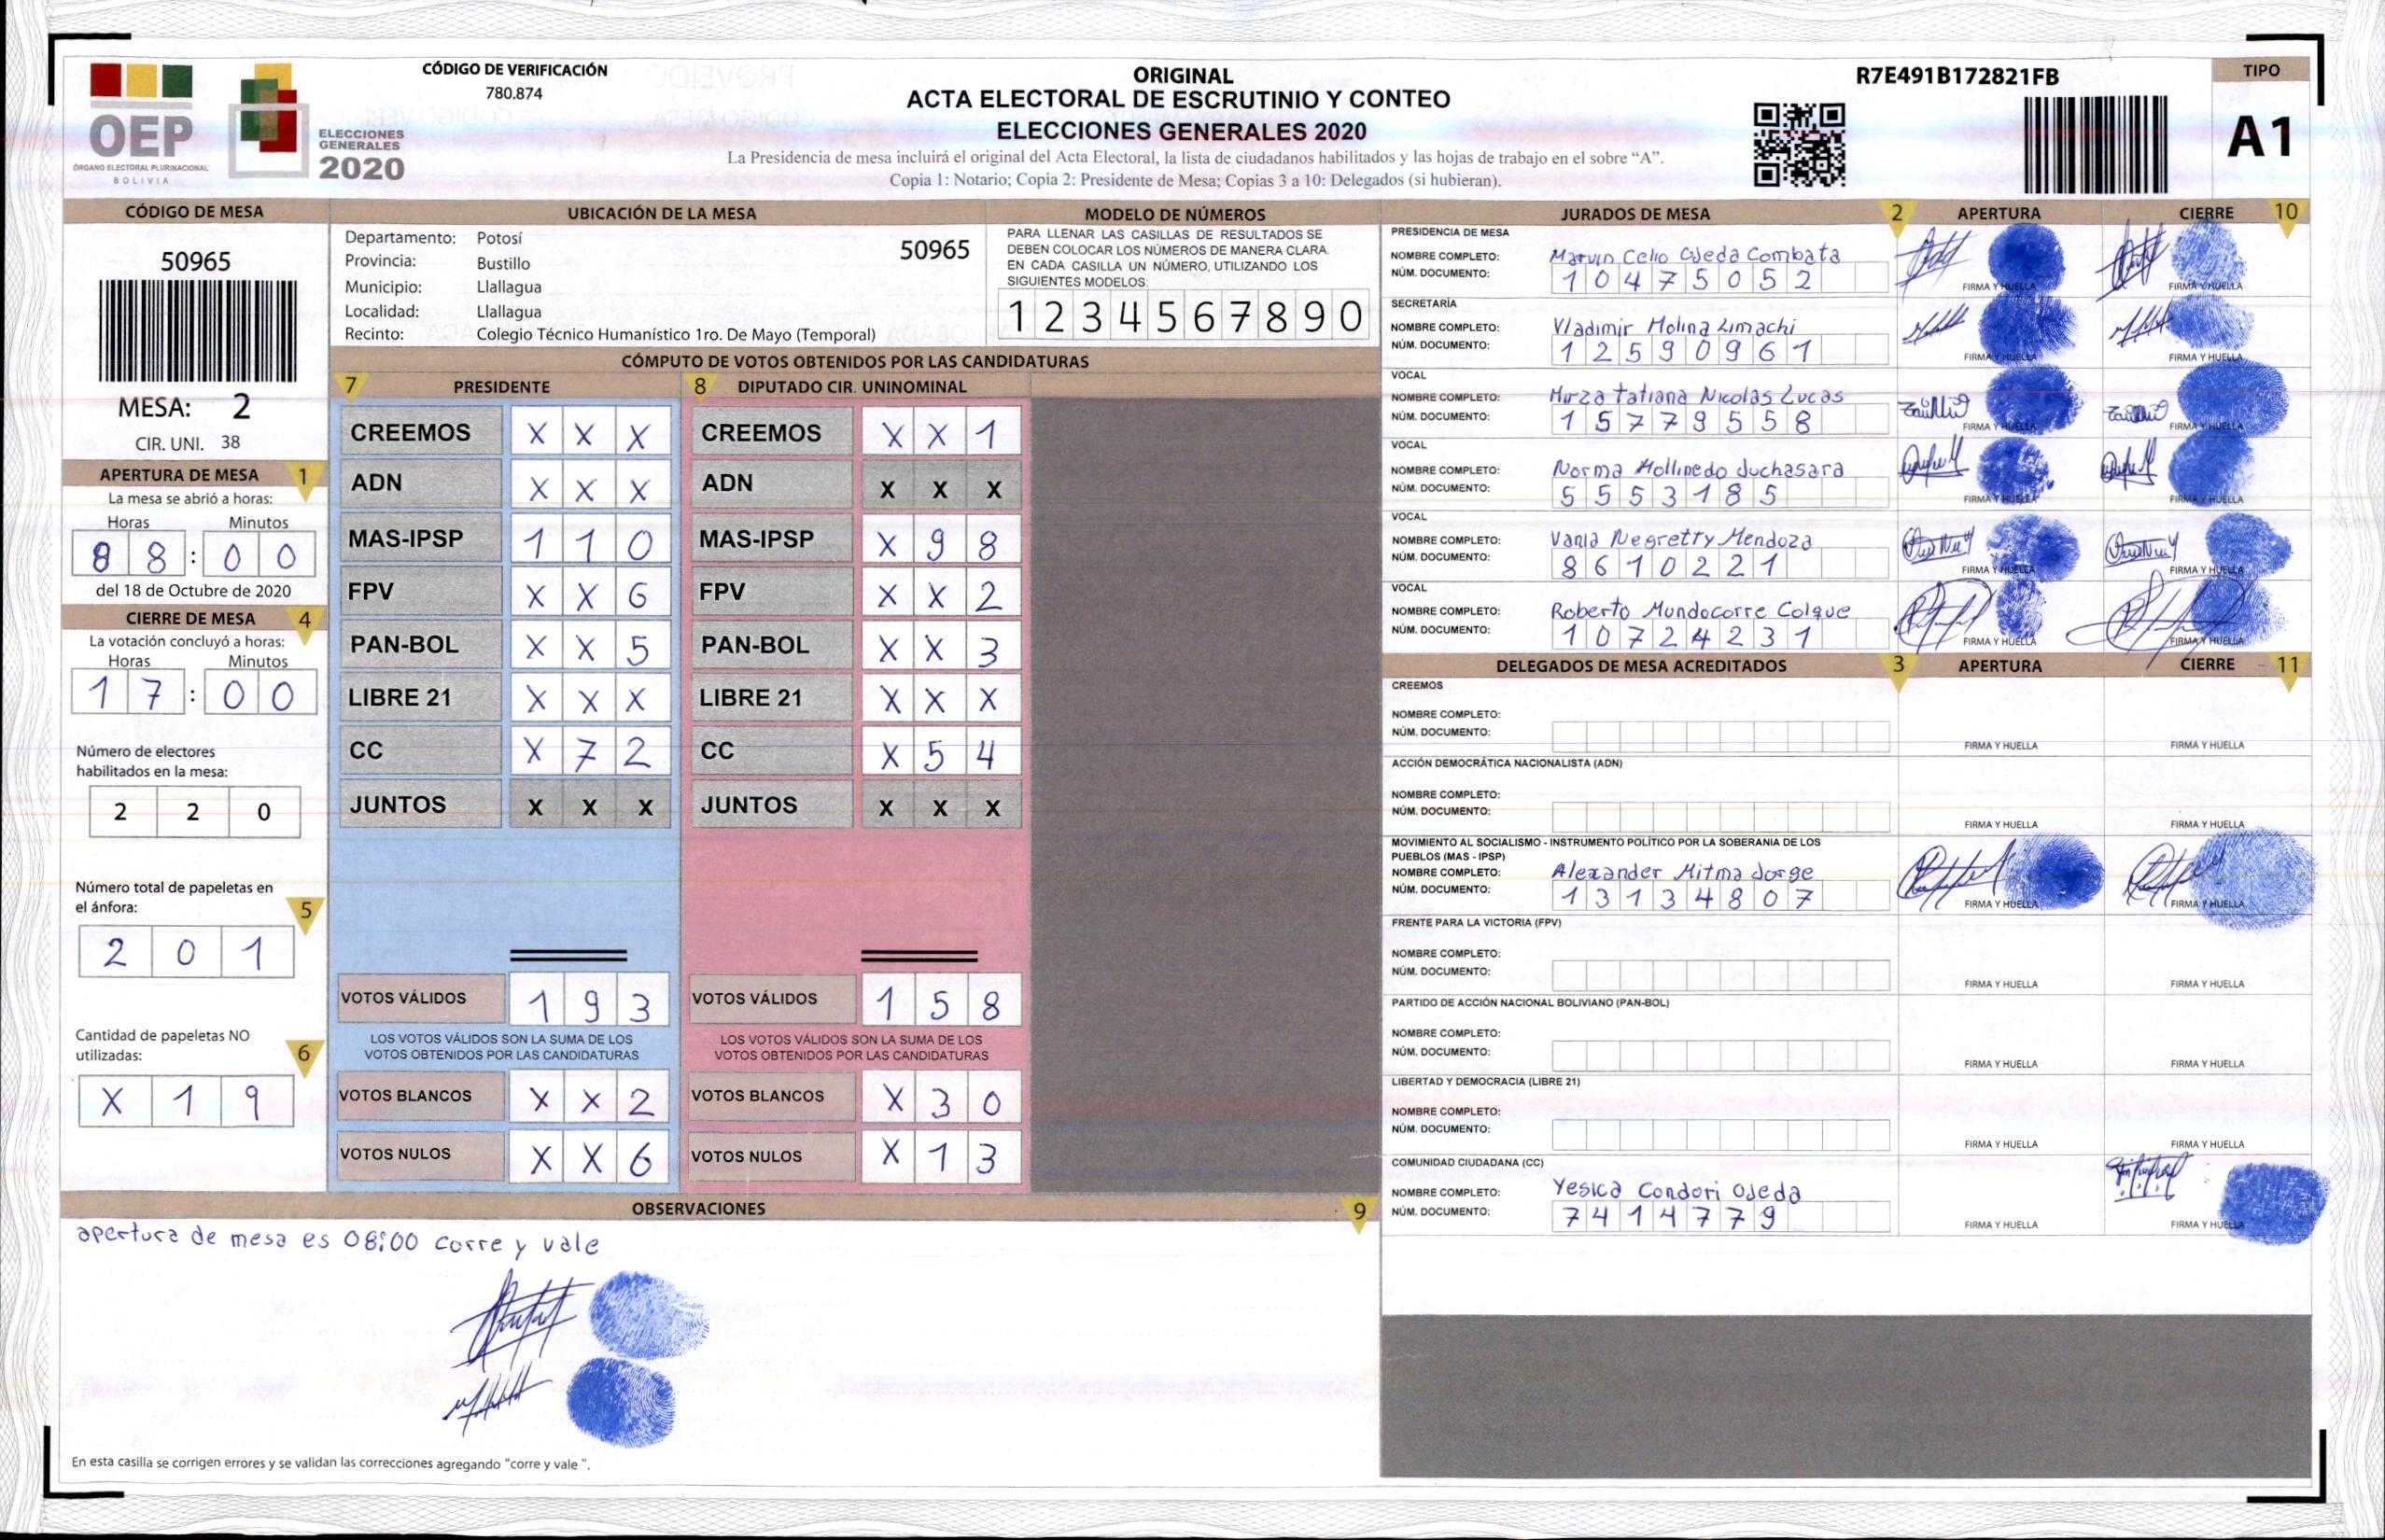 OEP
ÓRGANO ELECTORAL PLURINACIONAL
BOLIVIA
ELECCIONES
GENERALES
2020
CÓDIGO DE VERIFICACIÓN
780.874
ORIGINAL
ACTA ELECTORAL DE ESCRUTINIO Y CONTEO
ELECCIONES GENERALES 2020
La Presidencia de mesa incluirá el original del Acta Electoral, la lista de ciudadanos habilitados y las hojas de trabajo en el sobre “A”.
Copia 1: Notario; Copia 2: Presidente de Mesa; Copias 3 a 10: Delegados (si hubieran).
R7E491B172821FB
TIPO
A1
CÓDIGO DE MESA
50965
MESA: 2
CIR. UNI. 38
APERTURA DE MESA 1
La mesa se abrió a horas:
Horas Minutos
8 8 : 0 0
del 18 de Octubre de 2020
CIERRE DE MESA 4
La votación concluyó a horas:
Horas Minutos
1 7 : 0 0
Número de electores
habilitados en la mesa:
2 2 0
Número total de papeletas en
el ánfora: 5
2 0 1
Cantidad de papeletas NO
utilizadas: 6
X 1 9
UBICACIÓN DE LA MESA
Departamento: Potosí 50965
Provincia: Bustillo
Municipio: Llallagua
Localidad: Llallagua
Recinto: Colegio Técnico Humanístico 1ro. De Mayo (Temporal)
MODELO DE NÚMEROS
PARA LLENAR LAS CASILLAS DE RESULTADOS SE
DEBEN COLOCAR LOS NÚMEROS DE MANERA CLARA.
EN CADA CASILLA UN NÚMERO, UTILIZANDO LOS
SIGUIENTES MODELOS:
1 2 3 4 5 6 7 8 9 0
CÓMPUTO DE VOTOS OBTENIDOS POR LAS CANDIDATURAS
7 PRESIDENTE 8 DIPUTADO CIR. UNINOMINAL
CREEMOS X X X CREEMOS X X 1
ADN X X X ADN X X X
MAS-IPSP 1 1 0 MAS-IPSP X 9 8
FPV X X 6 FPV X X 2
PAN-BOL X X 5 PAN-BOL X X 3
LIBRE 21 X X X LIBRE 21 X X X
CC X 7 2 CC X 5 4
JUNTOS X X X JUNTOS X X X
VOTOS VÁLIDOS 1 9 3 VOTOS VÁLIDOS 1 5 8
LOS VOTOS VÁLIDOS SON LA SUMA DE LOS LOS VOTOS VÁLIDOS SON LA SUMA DE LOS
VOTOS OBTENIDOS POR LAS CANDIDATURAS VOTOS OBTENIDOS POR LAS CANDIDATURAS
VOTOS BLANCOS X X 2 VOTOS BLANCOS X 3 0
VOTOS NULOS X X 6 VOTOS NULOS X 1 3
OBSERVACIONES 9
apertura de mesa es 08:00 corre y vale
En esta casilla se corrigen errores y se validan las correcciones agregando "corre y vale ".
JURADOS DE MESA 2 APERTURA CIERRE 10
PRESIDENCIA DE MESA
NOMBRE COMPLETO: Marvin Celio Ojeda Combata
NÚM. DOCUMENTO: 1 0 4 7 5 0 5 2
FIRMA Y HUELLA FIRMA Y HUELLA
SECRETARÍA
NOMBRE COMPLETO: Vladimir Molina Limachi
NÚM. DOCUMENTO: 1 2 5 9 0 9 6 1
FIRMA Y HUELLA FIRMA Y HUELLA
VOCAL
NOMBRE COMPLETO: Mirza Tatiana Nicolas Lucas
NÚM. DOCUMENTO: 1 5 7 7 9 5 5 8
FIRMA Y HUELLA FIRMA Y HUELLA
VOCAL
NOMBRE COMPLETO: Norma Mollinedo Juchasara
NÚM. DOCUMENTO: 5 5 5 3 1 8 5
FIRMA Y HUELLA FIRMA Y HUELLA
VOCAL
NOMBRE COMPLETO: Vania Negretty Mendoza
NÚM. DOCUMENTO: 8 6 1 0 2 2 1
FIRMA Y HUELLA FIRMA Y HUELLA
VOCAL
NOMBRE COMPLETO: Roberto Mundocorre Colque
NÚM. DOCUMENTO: 1 0 7 2 4 2 3 1
FIRMA Y HUELLA FIRMA Y HUELLA
DELEGADOS DE MESA ACREDITADOS 3 APERTURA CIERRE 11
CREEMOS
NOMBRE COMPLETO:
NÚM. DOCUMENTO:
FIRMA Y HUELLA FIRMA Y HUELLA
ACCIÓN DEMOCRÁTICA NACIONALISTA (ADN)
NOMBRE COMPLETO:
NÚM. DOCUMENTO:
FIRMA Y HUELLA FIRMA Y HUELLA
MOVIMIENTO AL SOCIALISMO - INSTRUMENTO POLÍTICO POR LA SOBERANIA DE LOS
PUEBLOS (MAS - IPSP)
NOMBRE COMPLETO: Alexander Mitma Jorge
NÚM. DOCUMENTO: 1 3 1 3 4 8 0 7
FIRMA Y HUELLA FIRMA Y HUELLA
FRENTE PARA LA VICTORIA (FPV)
NOMBRE COMPLETO:
NÚM. DOCUMENTO:
FIRMA Y HUELLA FIRMA Y HUELLA
PARTIDO DE ACCIÓN NACIONAL BOLIVIANO (PAN-BOL)
NOMBRE COMPLETO:
NÚM. DOCUMENTO:
FIRMA Y HUELLA FIRMA Y HUELLA
LIBERTAD Y DEMOCRACIA (LIBRE 21)
NOMBRE COMPLETO:
NÚM. DOCUMENTO:
FIRMA Y HUELLA FIRMA Y HUELLA
COMUNIDAD CIUDADANA (CC)
NOMBRE COMPLETO: Yesica Condori Ojeda
NÚM. DOCUMENTO: 7 4 1 4 7 7 9
FIRMA Y HUELLA FIRMA Y HUELLA